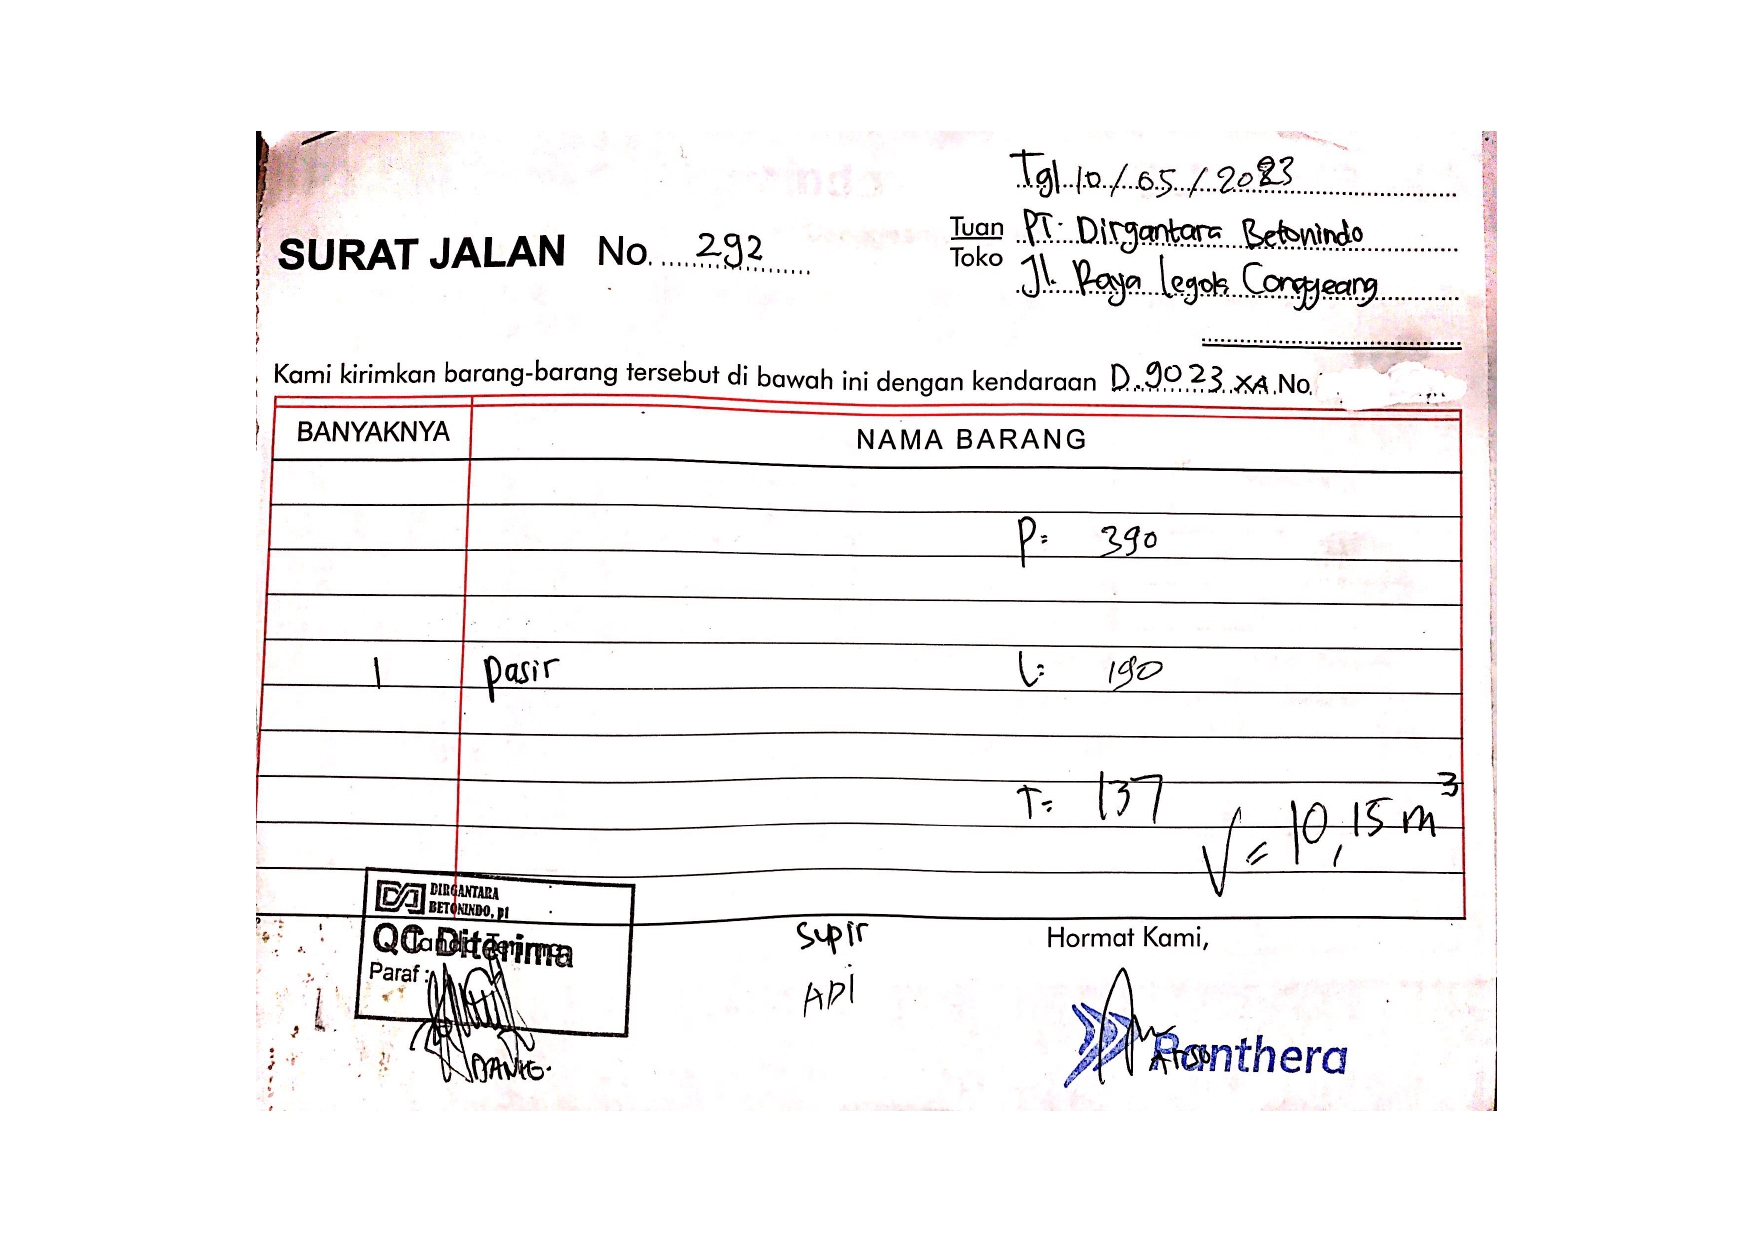 Tgl 10/05/2023
SURAT JALAN No. 292
Tuan PT. Dirgantara Betonindo
Toko
Jl. Raya Legok Conggeang
Kami kirimkan barang-barang tersebut di bawah ini dengan kendaraan D 9023 XA No.
BANYAKNYA NAMA BARANG
P= 390
1 pasir L= 190
T= 137
V= 10,15 m³
DIRGANTARA
BETONINDO, pt
QC Diterima
Tanda Terima
Paraf :
Supir
ADI
Hormat Kami,
Panthera